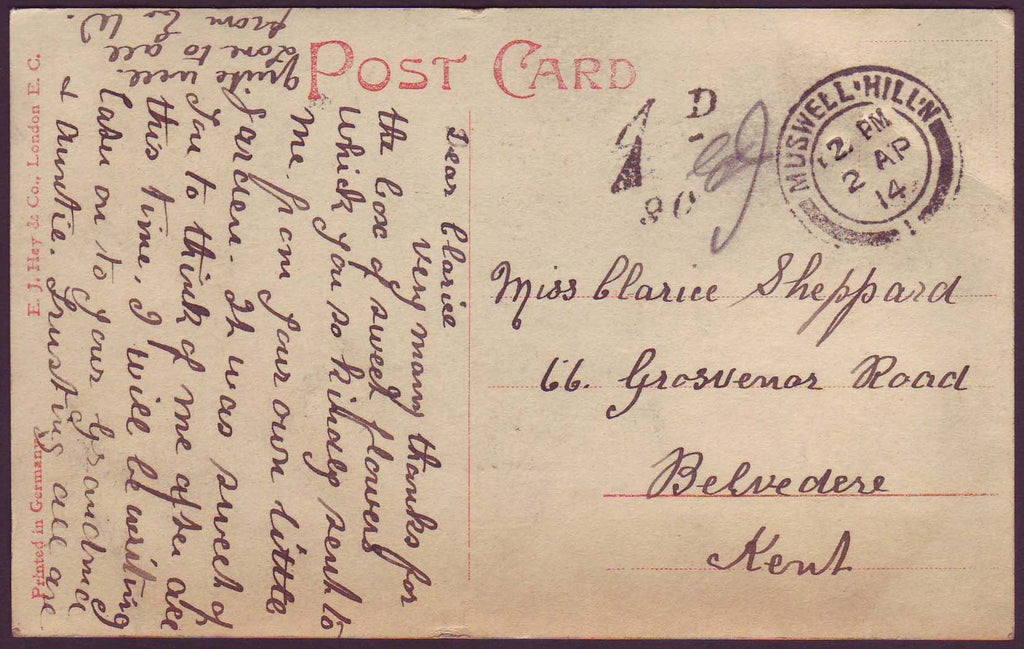 POST CARD
Dear Clarice
very many thanks for
the box of sweet flowers
which you so kindly sent to
me from your own little
garden. It was sweet of
you to think of me after all
this time, I will be writing
later on to your Grandma
& Auntie. Trusting all are
quite well
love to all
from
1 D
80
MUSWELL HILL N
2 PM
2 AP
14
Miss Clarice Sheppard
66. Grosvenor Road
Belvedere
Kent
E. J. Hey & Co., London E. C.
Printed in Germany.